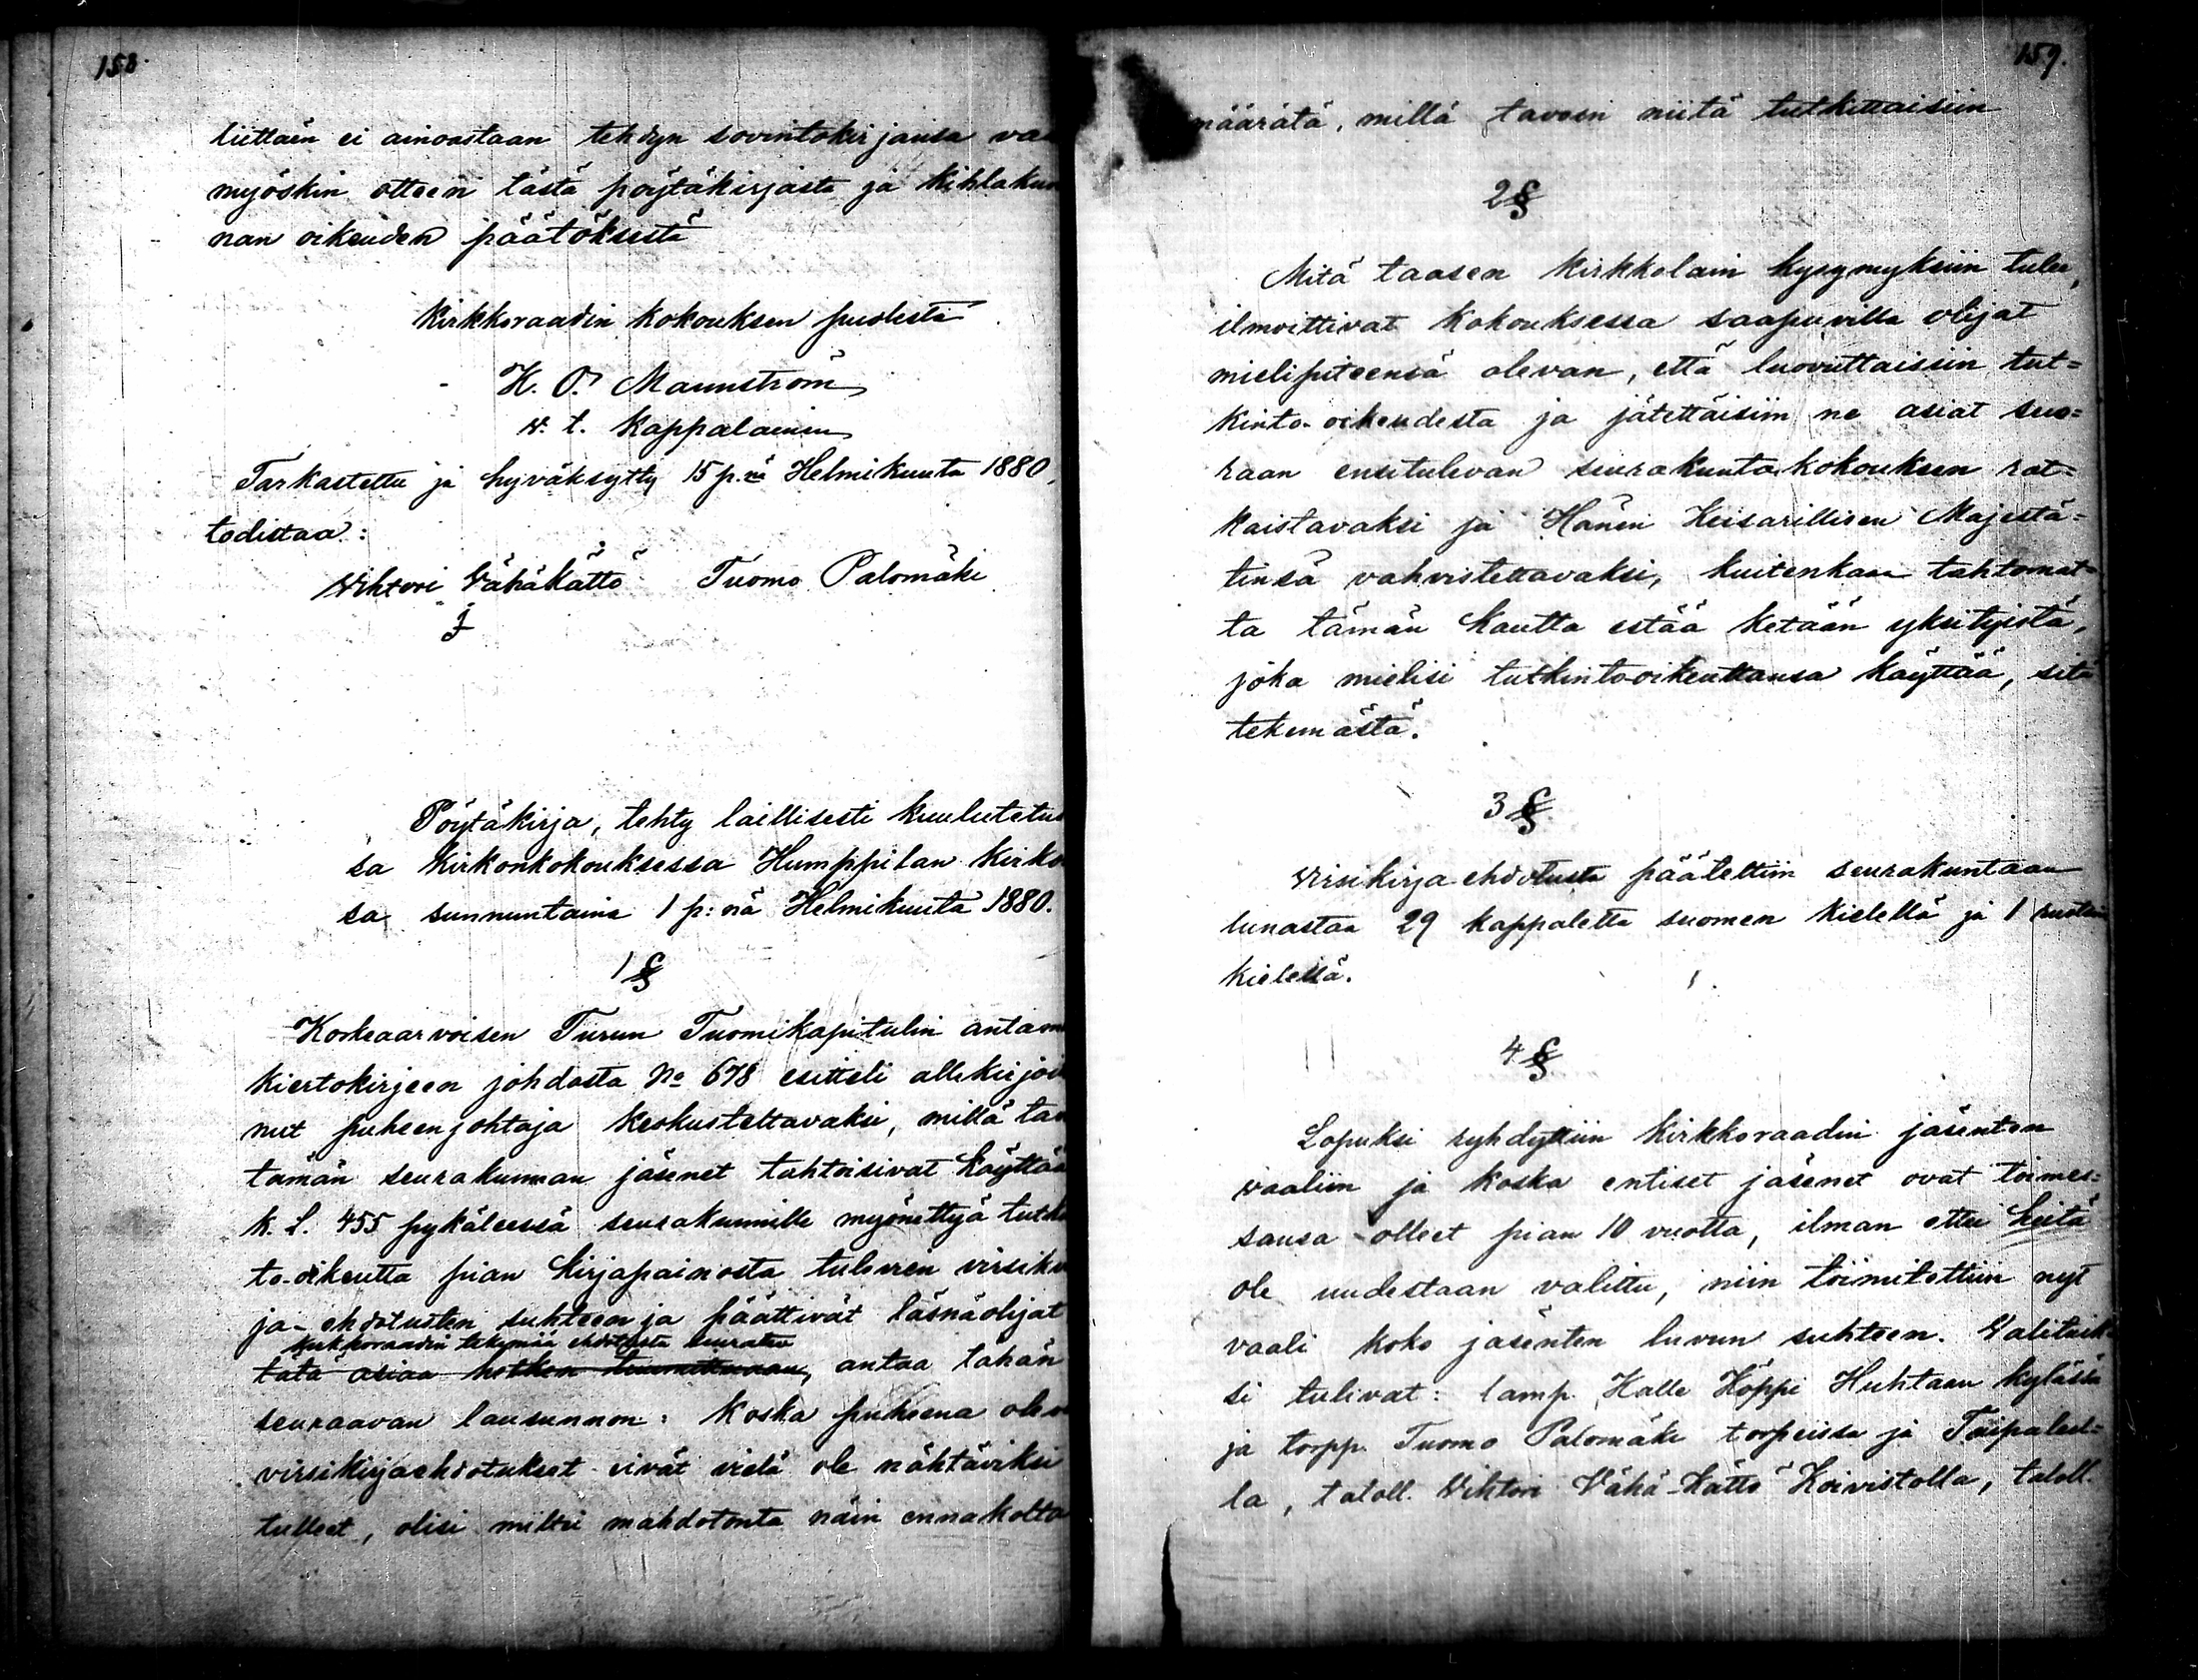 158.
liittäen ei ainoastaan tehdyn sovintokirjansa vaa
myöskin otteen tästä pöytäkirjasta ja kihlakun
nan oikeuden päätöksestä
Kirkkoraadin kokouksen puolesta
K. O. Maunström
v. t. Kappalainen
Tarkastettu ja hyväksytty 15 p.nä Helmikuuta 1880,
todistaa:
Vihtori Vähäkättö Tuomo Palomäki
Pöytäkirja, tehty laillisesti kuulutetus
sa Kirkonkokouksessa Humppilan kirkos
sa sunnuntaina 1 p:nä Helmikuuta 1880.
1 §
Korkeaarvoisen Turun Tuomikapitulin antam
kiertokirjeen johdosta No 678 esitteli allekirjoi
nut puheenjohtaja keskusteltavaksi, millä tav
tämän seurakunnan jäsenet tahtoisivat käyttää
k. L. 455 pykäleessä seurakunnille myönettyä tutki
to-oikeutta pian kirjapainosta tulevien virsikir
ja-ehdotusten suhteen ja päättivät läsnäolijat
Kirkkoraadin tekemää ehdotusta seuraten
tätä asiaa hetken tuumittuaan, antaa tähän
seuraavan lausunnon: Koska puheena olev
virsikirjaehdotukset eivät vielä ole nähtäviksi
tulleet, olisi miltei mahdotonta näin ennakolta
159.
määrätä, millä tavoin niitä tutkittaisiin
2 §
Mitä taasen Kirkkolain kysymyksiin tulee,
ilmoittivat kokouksessa saapuvilla olijat
mielipiteensä olevan, että luovuttaisiin tut=
kinto-oikeudesta ja jätettäisiin ne asiat suo=
raan ensitulevan seurakuntakokouksen rat=
kaistavaksi ja Hänen Keisarillisen Majestä=
tinsä vahvistettavaksi, kuitenkaan tahtomat=
ta tämän kautta estää ketään yksityistä,
joka mielisi tutkintooikeuttansa käyttää, sitä
tekemästä.
3 §
Virsikirja-ehdotusta päätettiin seurakuntaan
lunastaa 29 kappaletta suomen kielellä ja 1 ruotsin
kielellä.
4 §
Lopuksi ryhdyttiin kirkkoraadin jäsenten
vaaliin ja koska entiset jäsenet ovat toimes=
sansa olleet pian 10 vuotta, ilman ettei heitä
ole uudestaan valittu, niin toimitettiin nyt
vaali koko jäsenten luvun suhteen. Valituik
si tulivat: lamp. Kalle Höppi Huhtaan kylässä
ja torpp. Tuomo Palomäki torpeissa ja Taipaleel=
la, taloll. Vihtori Vähä-Kättö Koivistolla, taloll.